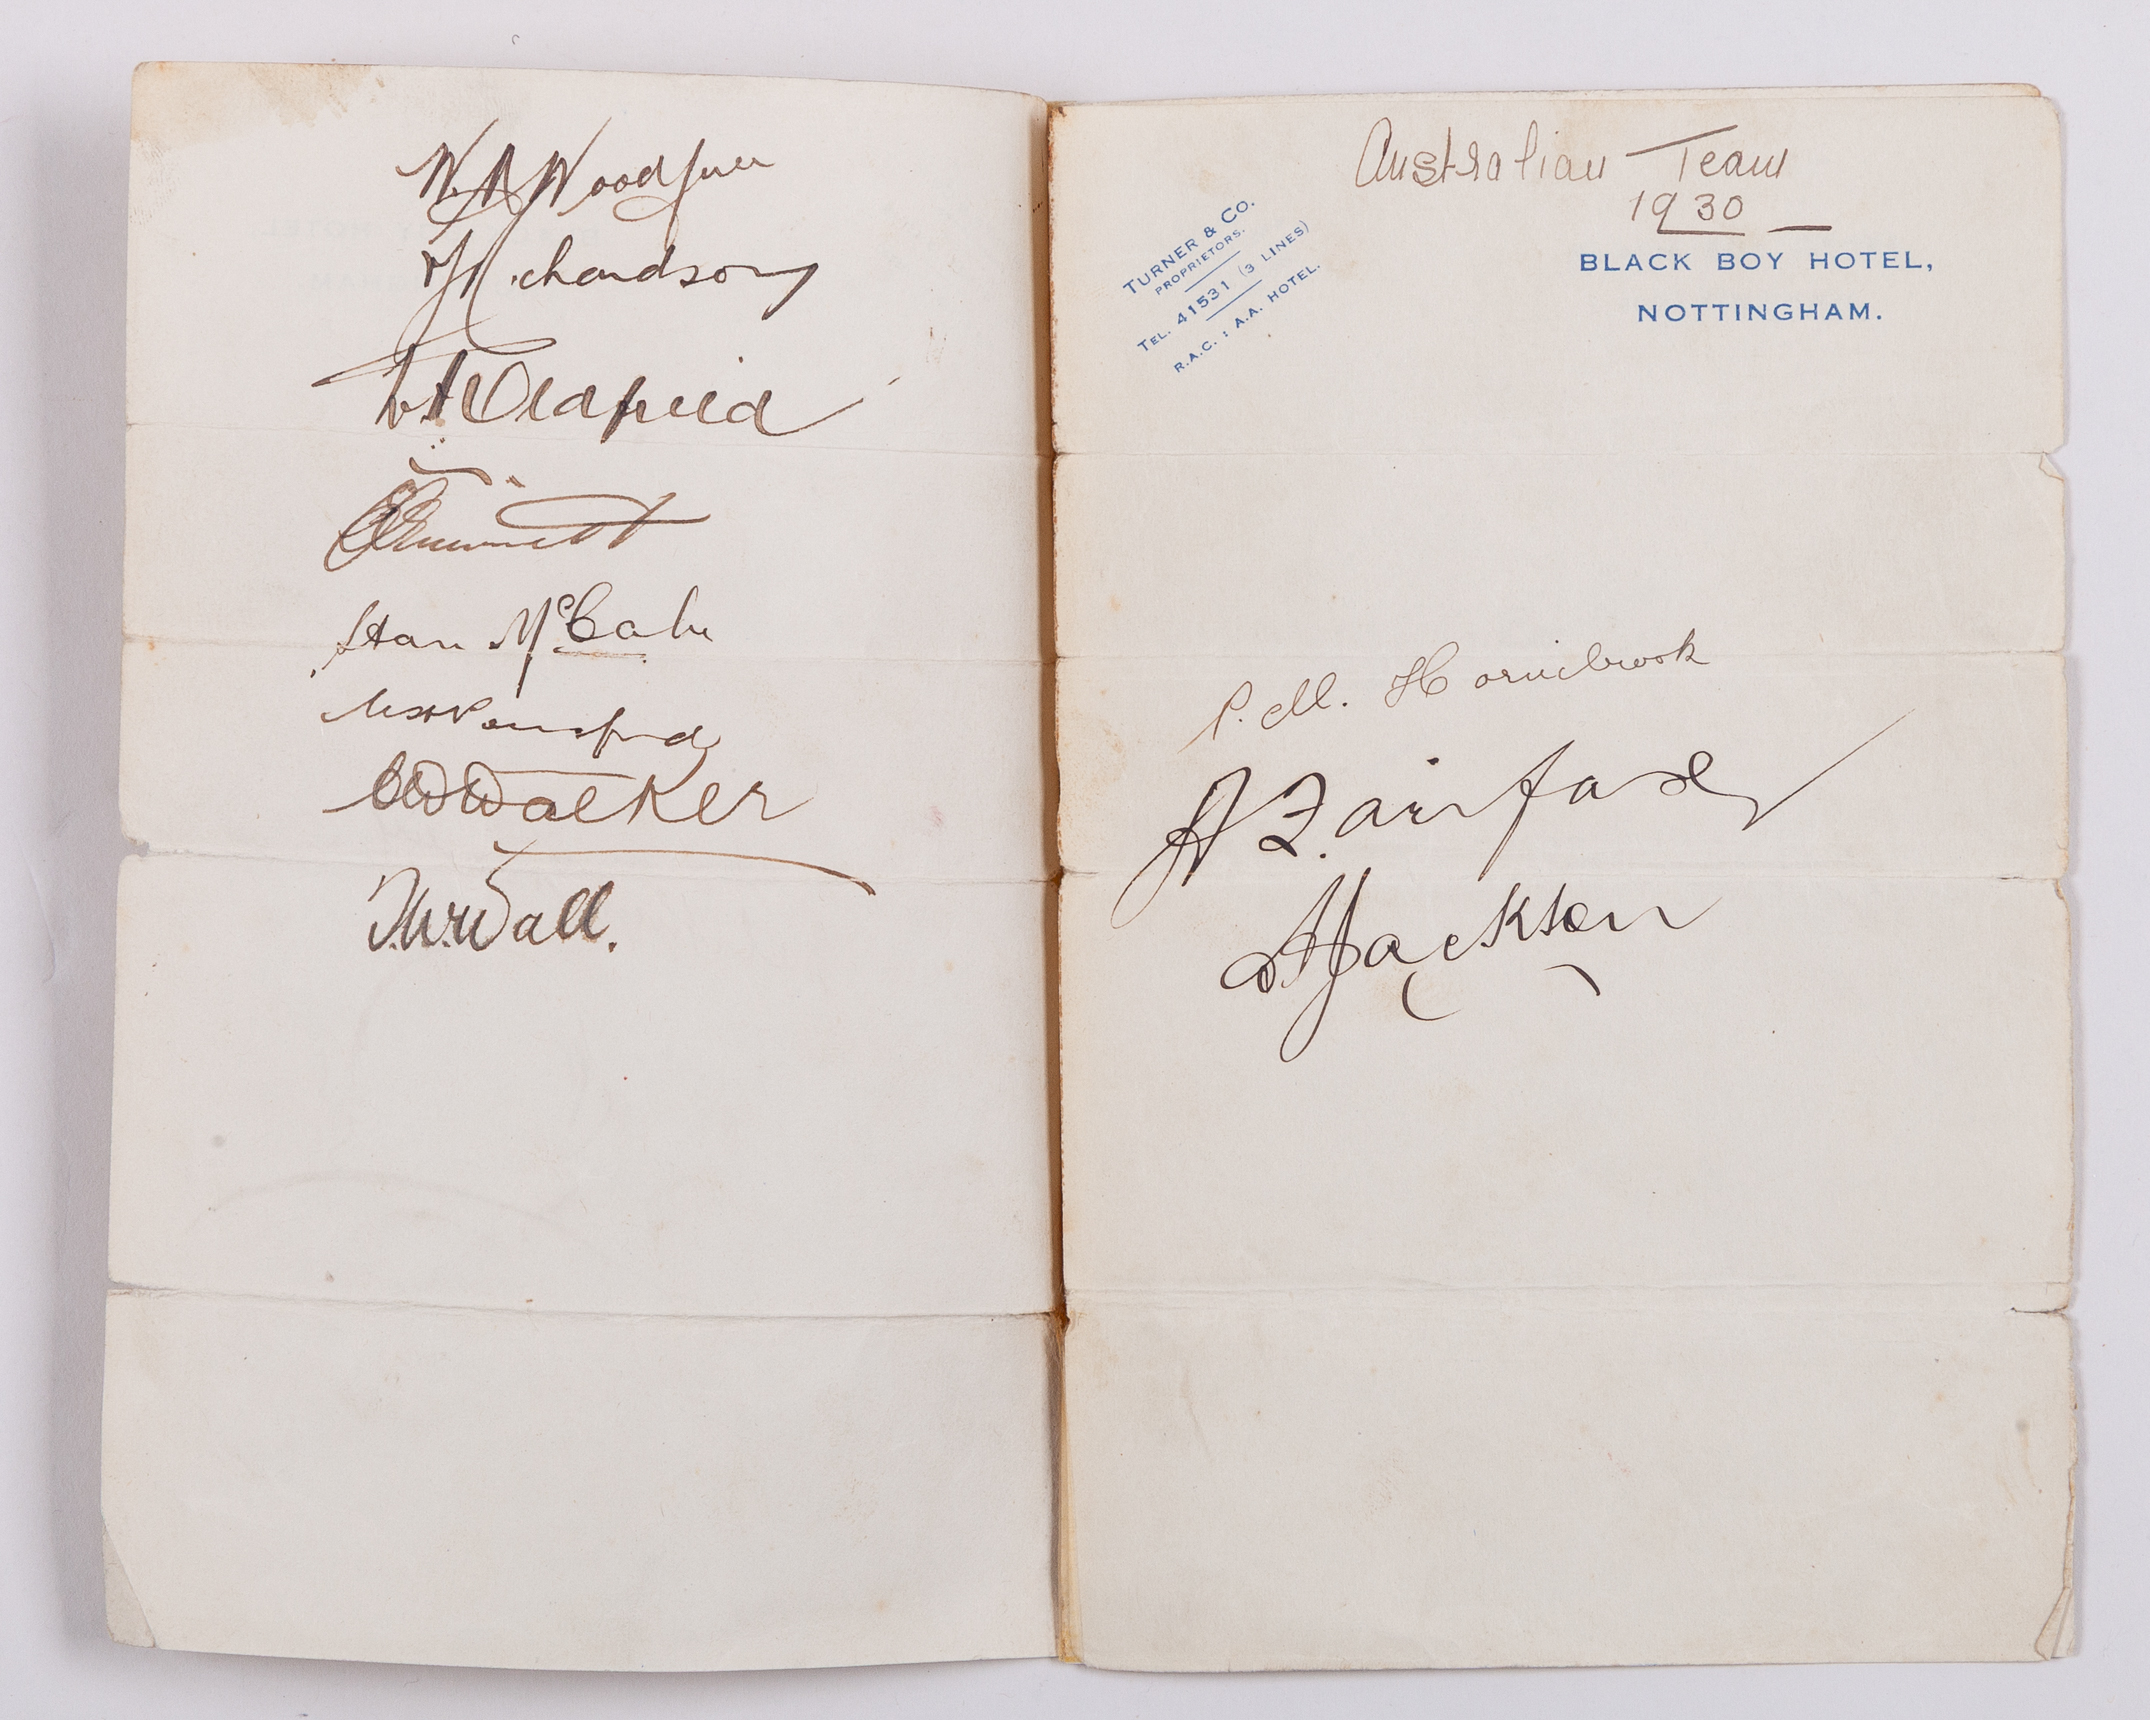 W. A. Woodfull
V Y Richardson
W A Oldfield
C V Grimmett
Stan McCabe
W H Ponsford
C W Walker
T. W. Wall.
Australian Team
1930
TURNER & CO.
PROPRIETORS.
TEL. 41531 (3 LINES)
R.A.C. : A.A. HOTEL.
BLACK BOY HOTEL,
NOTTINGHAM.
P. M. Hornibrook
A Fairfax
A Jackson